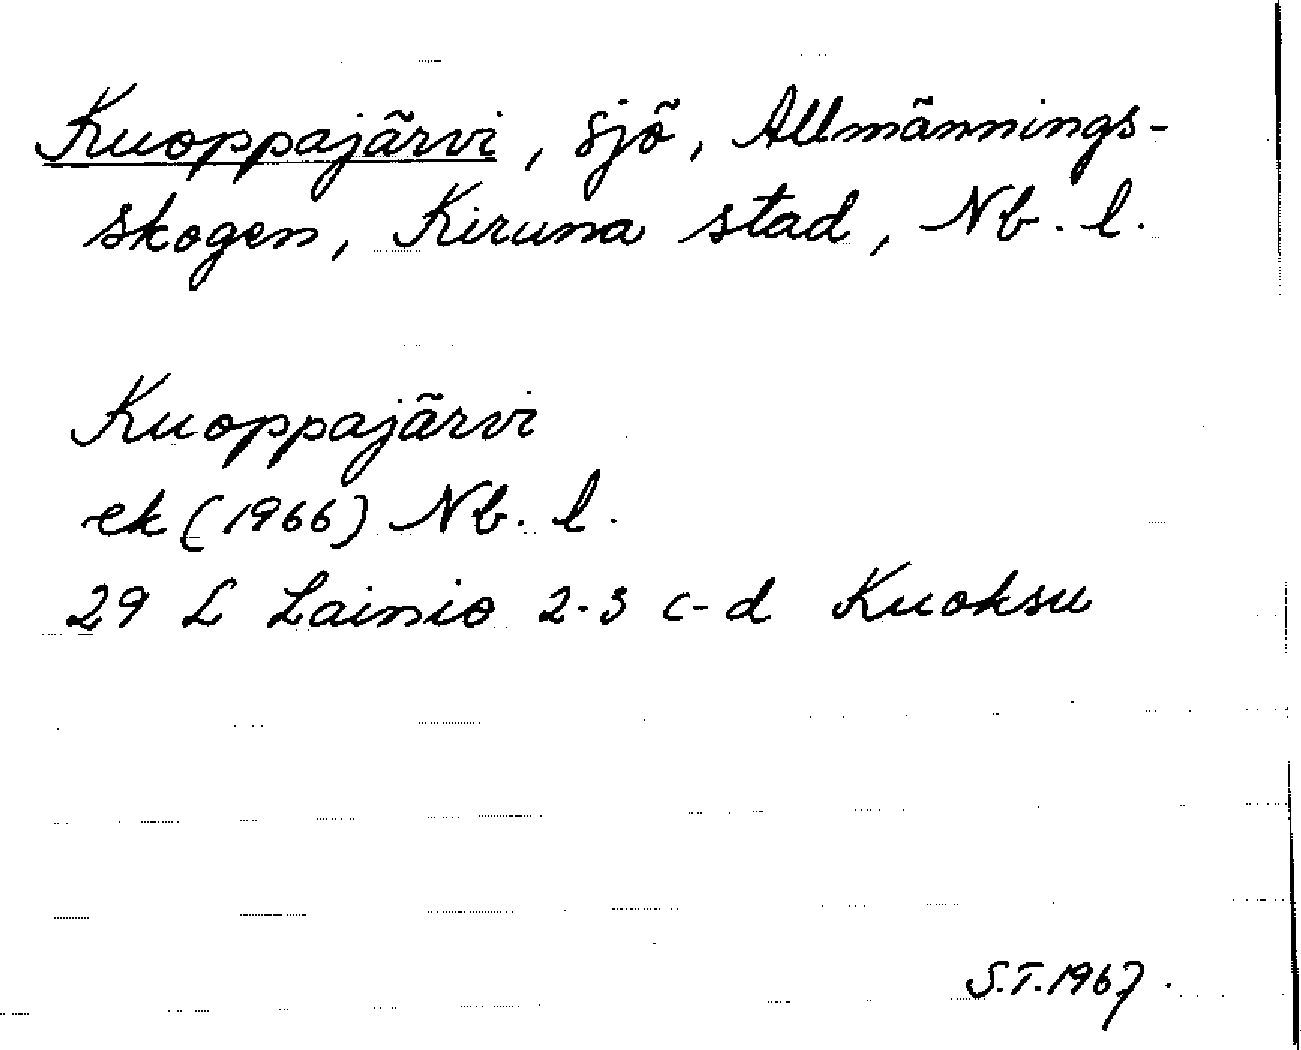 Kuoppajärvi, sjö, Allmännings-
skogen, Kiruna stad, Nb. l.
Kuoppajärvi
ek (1966) Nb. l.
29 L Lainio 2-3 c-d Kuoksu
S.T. 1967.